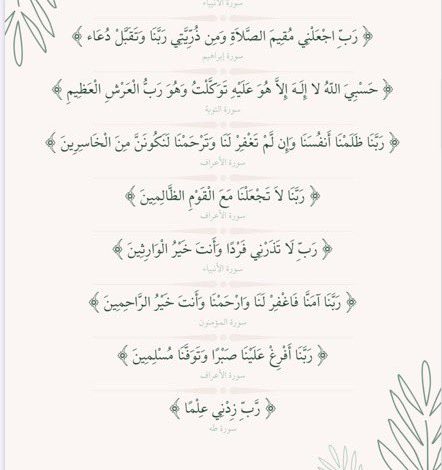 سورة الأنبياء
﴿ رَبِّ اجْعَلْنِي مُقِيمَ الصَّلاَةِ وَمِن ذُرِّيَّتِي رَبَّنَا وَتَقَبَّلْ دُعَاء ﴾
سورة إبراهيم
﴿ حَسْبِيَ اللّهُ لا إِلَـهَ إِلاَّ هُوَ عَلَيْهِ تَوَكَّلْتُ وَهُوَ رَبُّ الْعَرْشِ الْعَظِيمِ ﴾
سورة التوبة
﴿ رَبَّنَا ظَلَمْنَا أَنفُسَنَا وَإِن لَّمْ تَغْفِرْ لَنَا وَتَرْحَمْنَا لَنَكُونَنَّ مِنَ الْخَاسِرِينَ ﴾
سورة الأعراف
﴿ رَبَّنَا لاَ تَجْعَلْنَا مَعَ الْقَوْمِ الظَّالِمِينَ ﴾
سورة الأعراف
﴿ رَبِّ لَا تَذَرْنِي فَرْدًا وَأَنتَ خَيْرُ الْوَارِثِينَ ﴾
سورة الأنبياء
﴿ رَبَّنَا آمَنَّا فَاغْفِرْ لَنَا وَارْحَمْنَا وَأَنتَ خَيْرُ الرَّاحِمِينَ ﴾
سورة المؤمنون
﴿ رَبَّنَا أَفْرِغْ عَلَيْنَا صَبْرًا وَتَوَفَّنَا مُسْلِمِينَ ﴾
سورة الأعراف
﴿ رَّبِّ زِدْنِي عِلْمًا ﴾
سورة طه